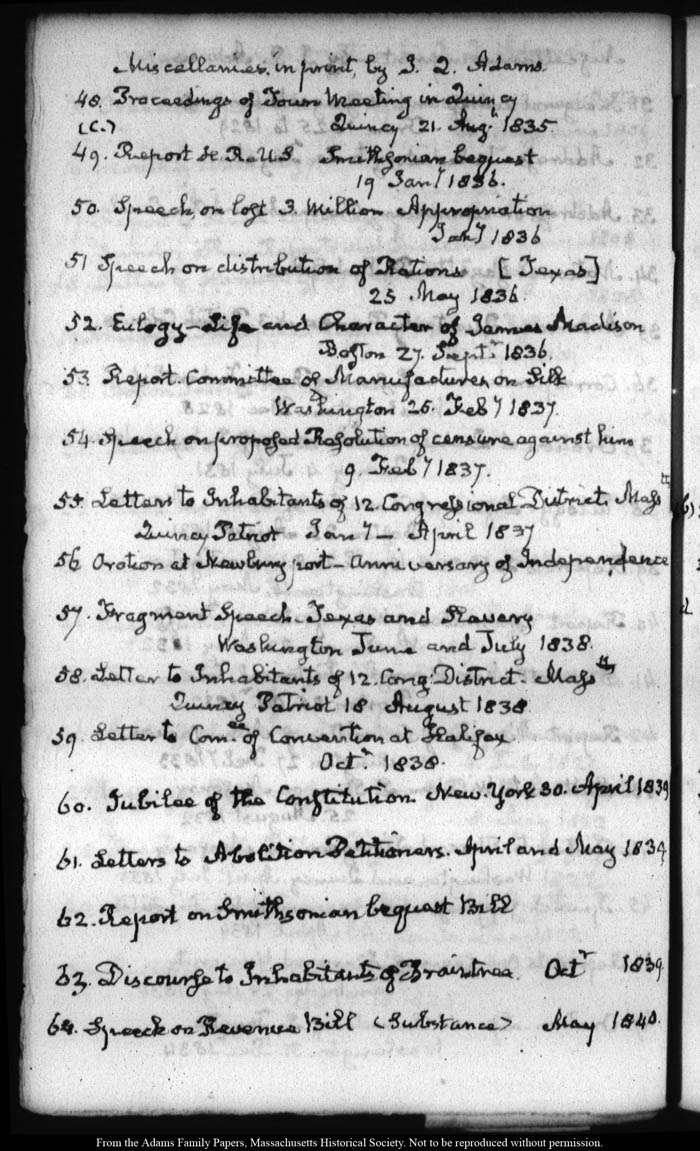 Miscellanies in print, by J. Q. Adams.
48. Proceedings of Town Meeting in Quincy
(C.) Quincy 21. Augt 1835.
49. Report H. R. U.S. Smithsonian bequest
19 Jany 1836.
50. Speech, on lost 3. Million Appropriation
Jany 1836
51 Speech on distribution of Rations [Texas]
25 May 1836.
52. Eulogy—Life and Character of James Madison
Boston 27. Septr 1836.
53. Report. Committee of Manufactures on Silk
Washington 25. Feby 1837.
54. Speech on proposed Resolution of censure against him
9. Feby 1837.
55. Letters to Inhabitants of 12. Congressional District, Masstts
Quincy Patriot Jany — April 1837
56 Oration at Newburyport—anniversary of Independence
57. Fragment Speech—Texas and Slavery
Washington June and July 1838.
58. Letter to Inhabitants of 12. Cong: District. Masstts
Quincy Patriot 18 August 1838
59. Letter to Comee of Convention at Halifax.
Octr 1838.
60. Jubilee of the Constitution. New-York 30. April 1839
61. Letters to Abolition Petitioners. April and May 1839
62. Report on Smithsonian bequest Bill
63. Discourse to Inhabitants of Braintree. Octr 1839.
64. Speech on Revenue Bill (Substance) May 1840.
From the Adams Family Papers, Massachusetts Historical Society. Not to be reproduced without permission.